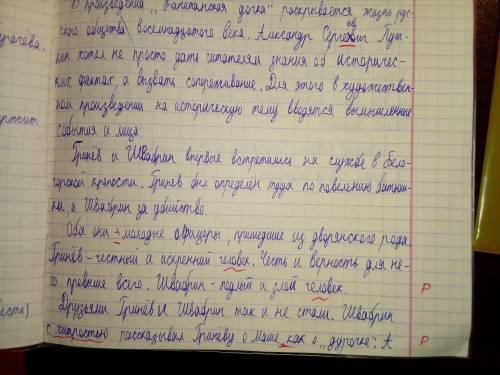 В произведении „Капитанская дочка" раскрывается жизнь рус-
ского общества восемнадцатого века. Александр Сергеевич Пуш-
кин хотел не просто дать читателям знания об историчес-
ких фактах, а вызвать сопереживание. Для этого в художествен-
ном произведении на историческую тему вводятся вымышленные
события и лица.
Гринёв и Швабрин впервые встретились на службе в Бело-
горской крепости. Гринёв был определён туда по повелению батюш-
ки, а Швабрин за убийство.
Оба они – молодые офицеры, пришедшие из дворянского рода.
Гринёв – честный и искренний человек. Честь и верность для не-
го превыше всего. Швабрин – подлый и злой человек.
Р
Друзьями Гринёв и Швабрин так и не стали. Швабрин
с хитростью рассказывал Гринёву о Маше, как о „дурочке". А
Р